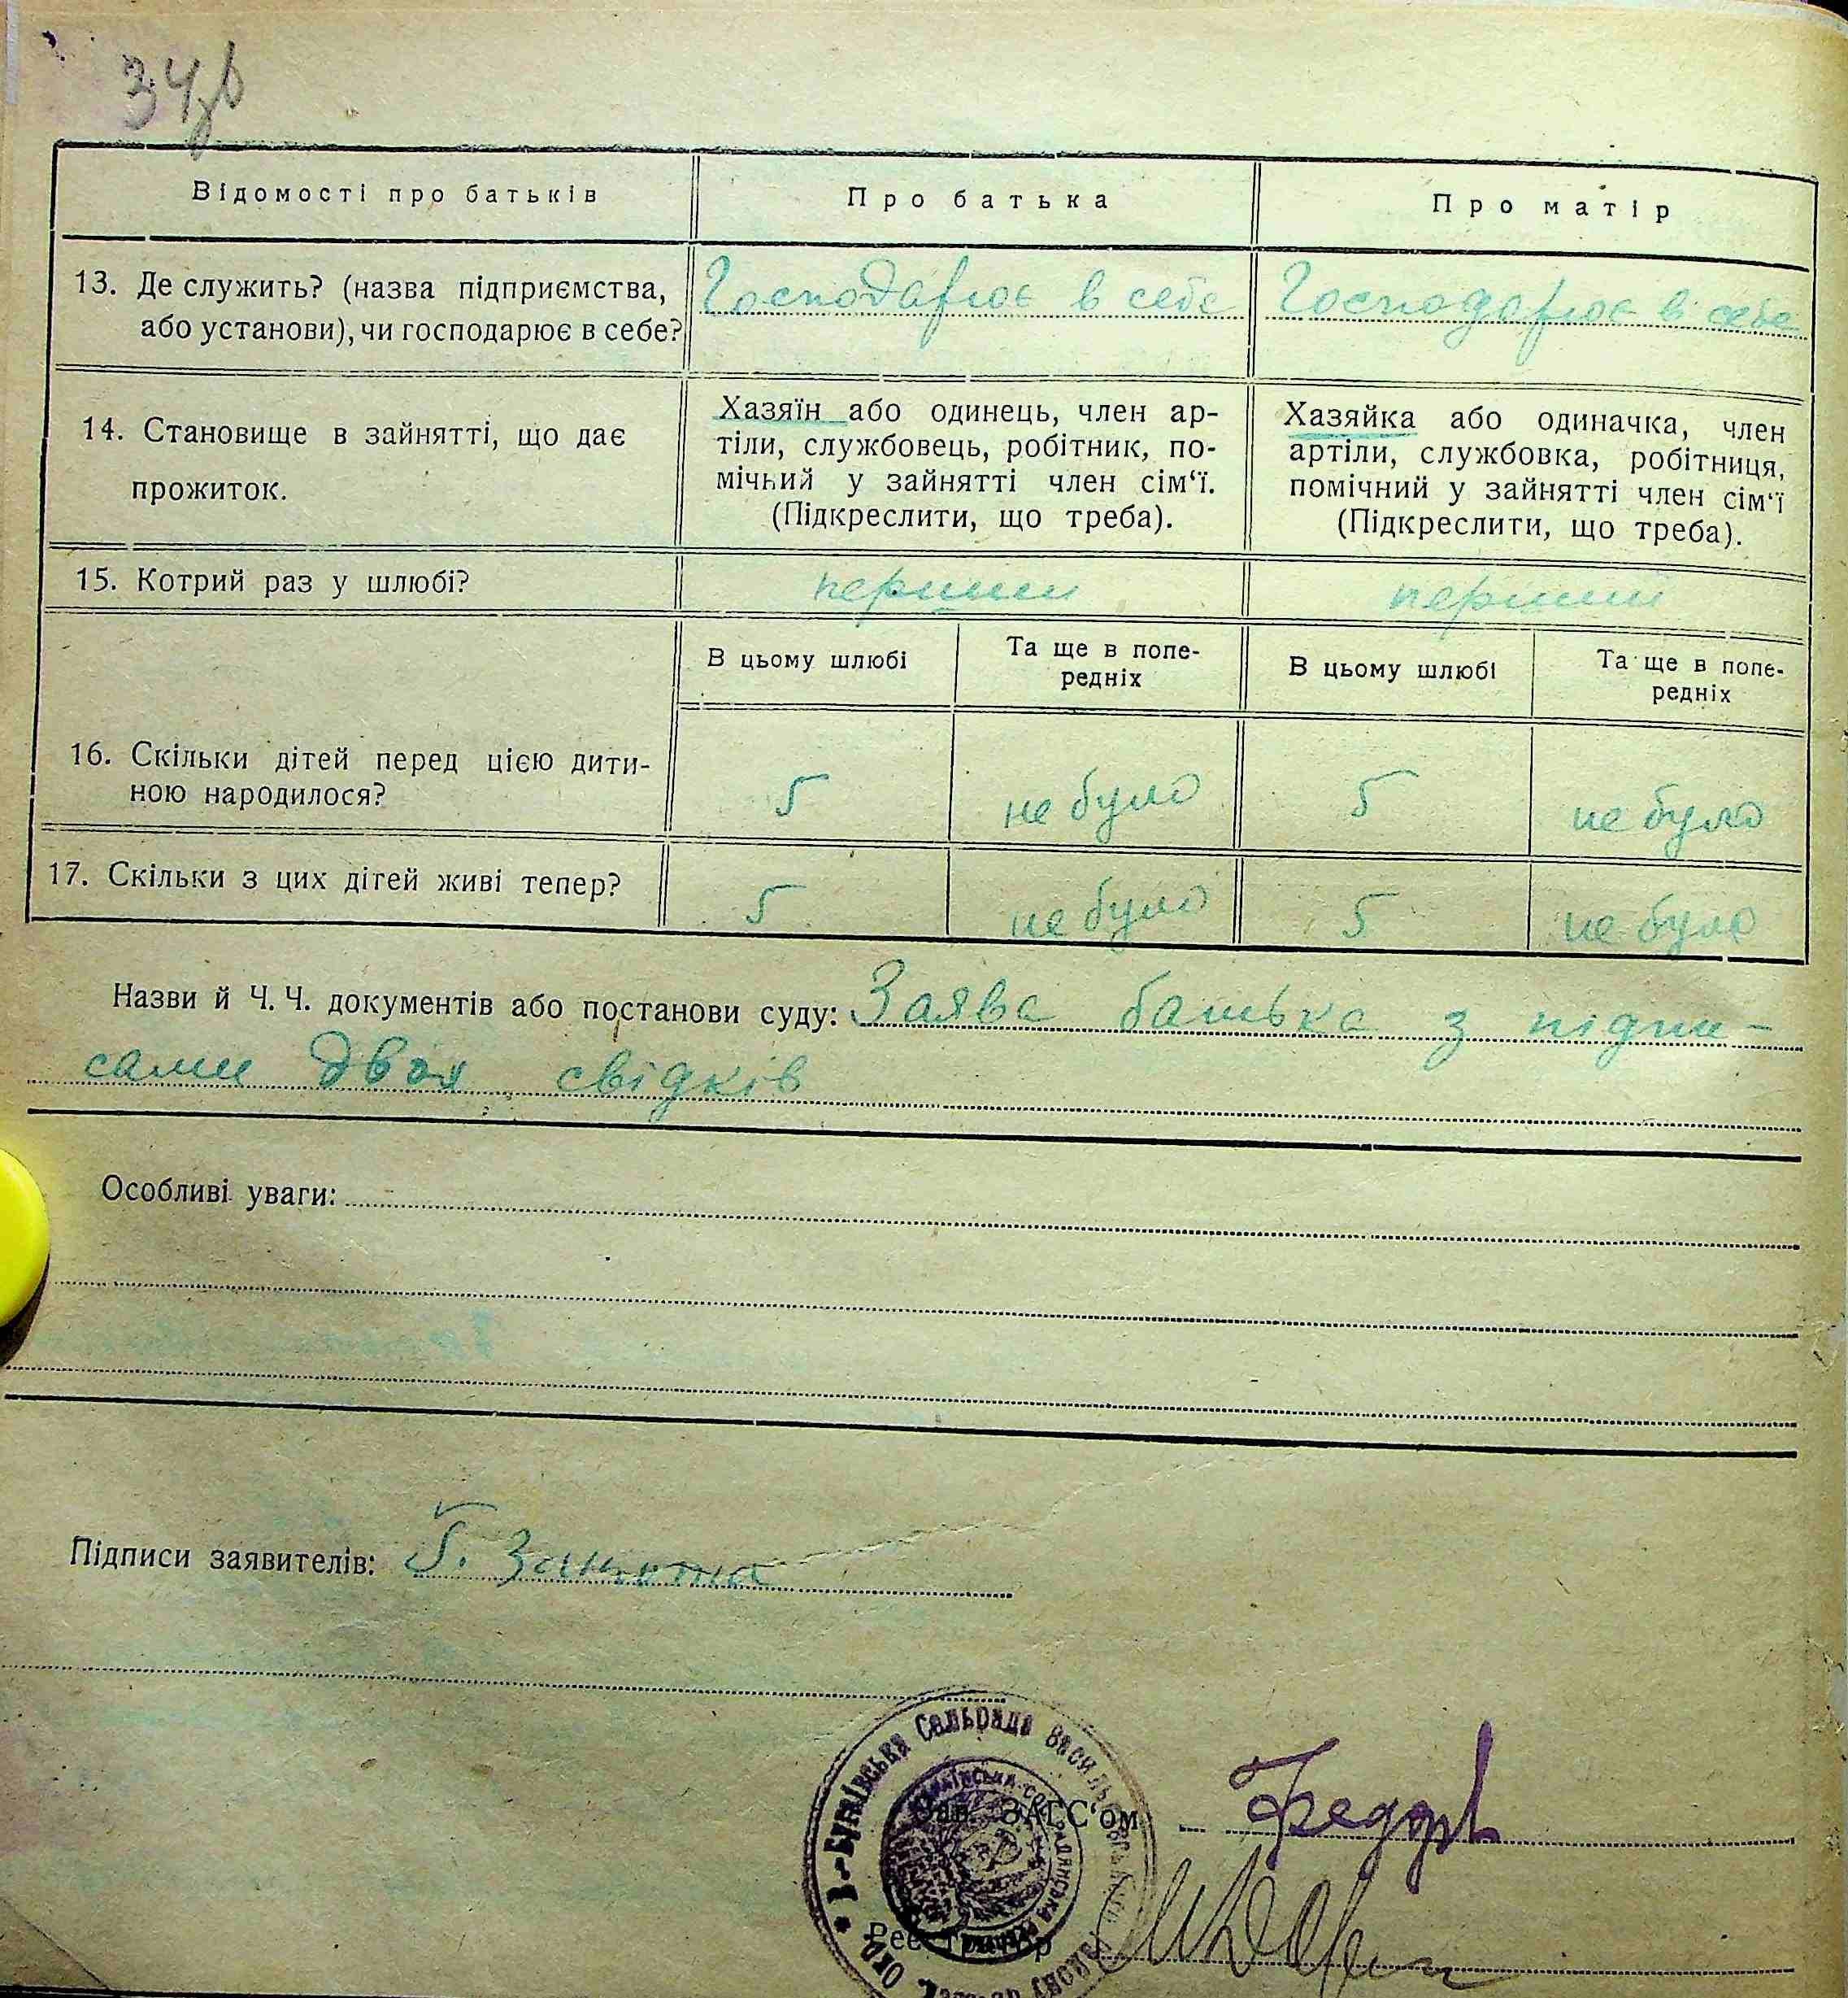 34зв
Відомості про батьків
Про батька
Про матір
13. Де служить? (назва підприємства,
або установи), чи господарює в себе?
Господарює в себе
Господарює в себе
14. Становище в зайнятті, що дає
прожиток.
Хазяїн або одинець, член ар-
тіли, службовець, робітник, по-
мічний у зайнятті член сім‘ї.
(Підкреслити, що треба).
Хазяйка або одиначка, член
артіли, службовка, робітниця,
помічний у зайнятті член сім‘ї
(Підкреслити, що треба).
15. Котрий раз у шлюбі?
перший
перший
В цьому шлюбі
Та ще в попе-
редніх
В цьому шлюбі
Та ще в попе-
редніх
16. Скільки дітей перед цією дити-
ною народилося?
5
не було
5
не було
17. Скільки з цих дітей живі тепер?
5
не було
5
не було
Назви й Ч. Ч. документів або постанови суду: Заява батька з підпи-
сами двох свідків
Особливі уваги:
Підписи заявителів:
Сельрада
Зав. ЗАГС‘ом
Реєстратор